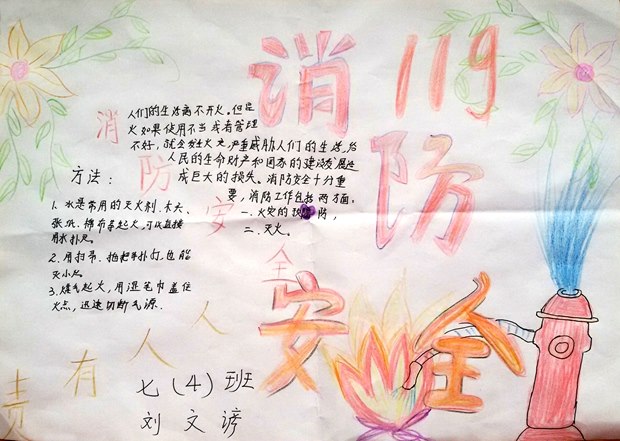 119
消防
安全
消防安全
人人有责
人们的生活离不开火。但是
火如果使用不当或者管理
不好,就会发生火灾,严重威胁人们的生活,给
人民的生命财产和国家的建设发展造
成巨大的损失。消防安全十分重
要,消防工作包括两方面:
一、火灾的预防,
二、灭火。
方法:
1、水是常用的灭火剂、木头、
张纸、棉布等起火,可以直接
用水扑灭。
2、用扫帚、拖把等扑打,也能
灭小火。
3、煤气起火,用湿毛巾盖住
火点,迅速切断气源.
七(4)班
刘文谚